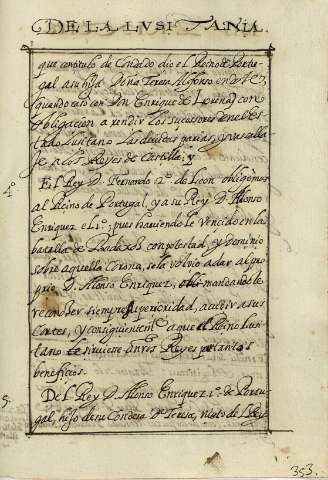 DE LA LUSITANIA.
que con titulo de Condado dio el Reino de Portu-
gal a su hija Doña Teresa Alfonso en dote
quando casó con Don Enrique de Lorena, con
obligacion a rendir los sucessores en el es-
tado Lusitano las devidas parias, y vasalla-
je a los Reyes de Castilla; y
4º
El Rey D. Fernando 2º de Leon obligó
al Reino de Portugal, y a su Rey D. Alonso
Enriquez el 1º; pues haviendole vencido en la
batalla de Badaxos con potestad, y dominio
sobre aquella Corona, se la volvio a dar al pro-
prio D. Alonso Enriquez, obligandole
reconocer siempre superioridad, acudir a sus
Cortes, y consiguientemte a que el Reino Lusi-
tano sirviesse a nros Reyes por tantos
beneficios.
5.
Del Rey D. Alonso Enriquez 1º de Portu-
gal, hijo de su Condesa Da Teresa, nieto del Rey
353.